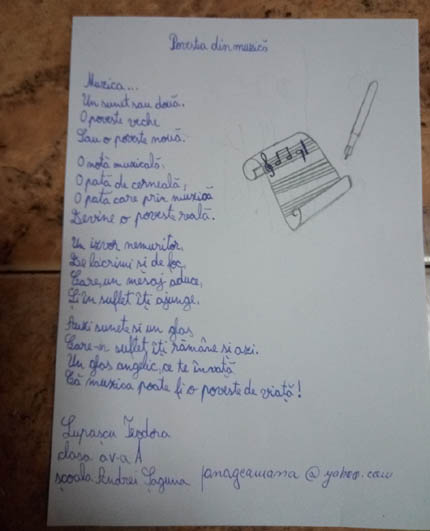 Povestea din muzică
Muzica...
Un sunet sau două.
O poveste veche
Sau o poveste nouă.
O notă muzicală,
O pată de cerneală,
O pată care prin muzică
Devine o poveste reală.
Un izvor nemuritor,
De lacrimi și de foc,
Care, un mesaj aduce,
Și în suflet îți ajunge.
Auzi sunete si un glas
Care-n suflet îți rămâne si azi.
Un glas angelic, ce te învață
Că muzica poate fi o poveste de viață!
Lupașcu Teodora
clasa a v-a A
școala Andrei Șaguna
@yahoo.com